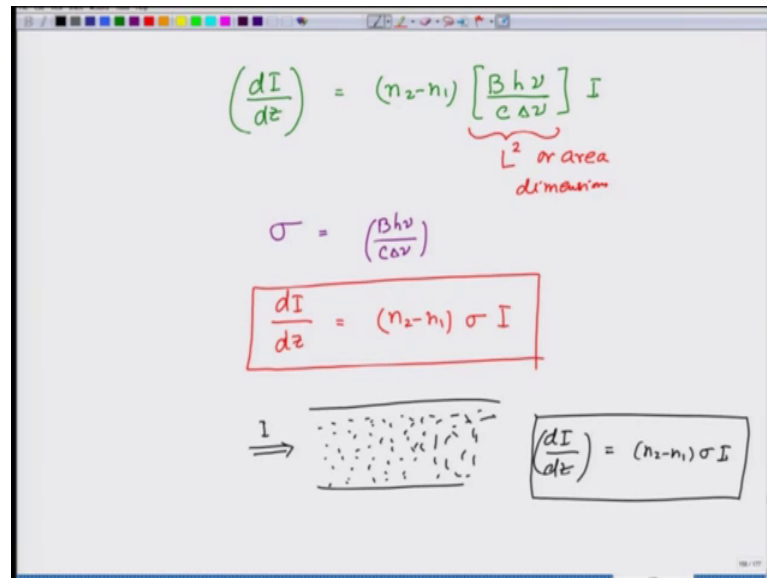 (dI/dz) = (n₂-n₁) [Bhν/cΔν] I
L² or area
dimension
σ = (Bhν/cΔν)
dI/dz = (n₂-n₁) σ I
I
(dI/dz) = (n₂-n₁) σ I